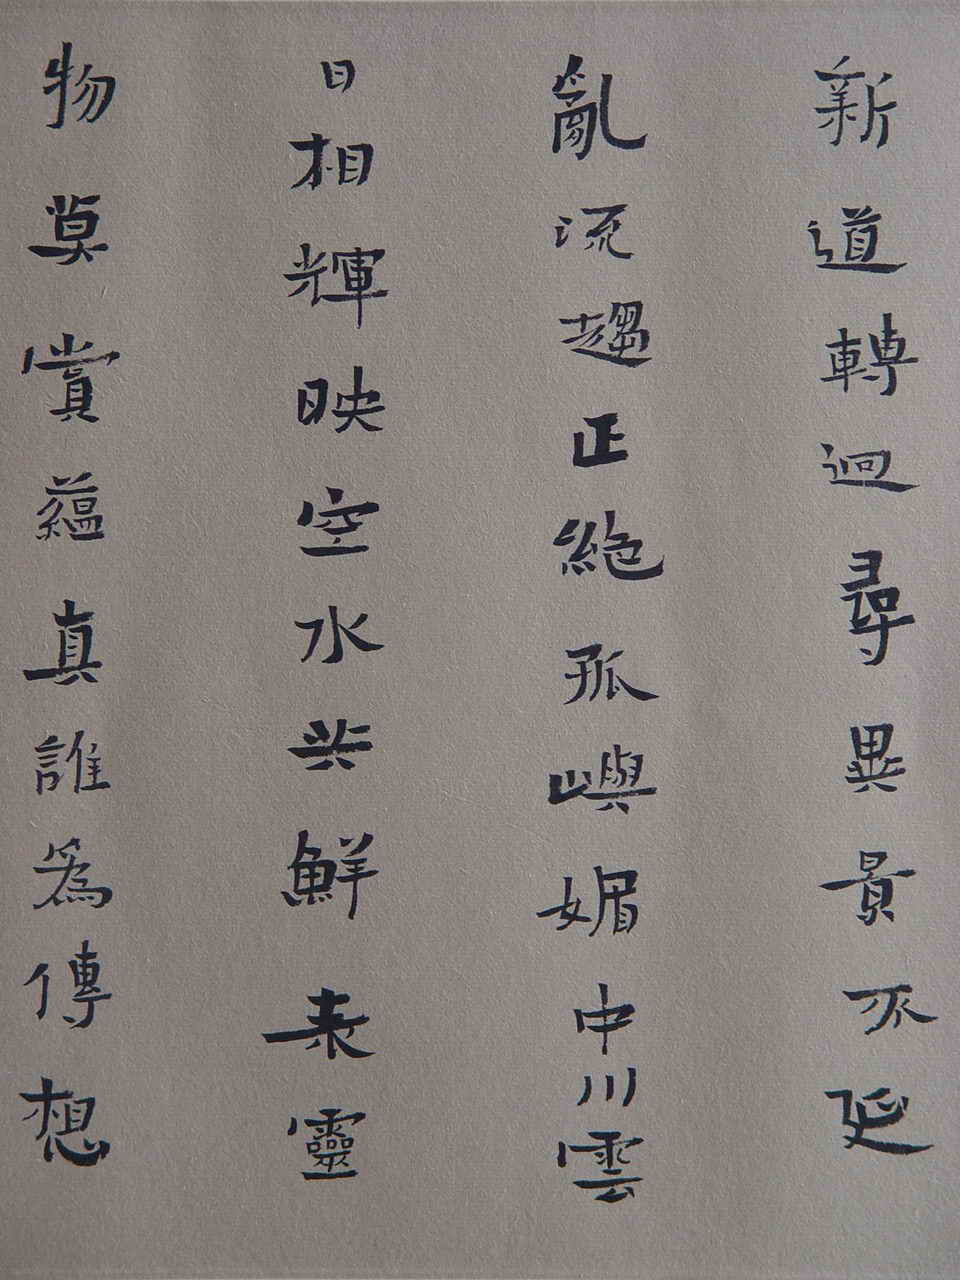 新道轉迥尋異景不延
亂流趨正絕孤嶼媚中川雲
日相輝映空水共鮮来靈
物莫賞蘊真誰為傳想